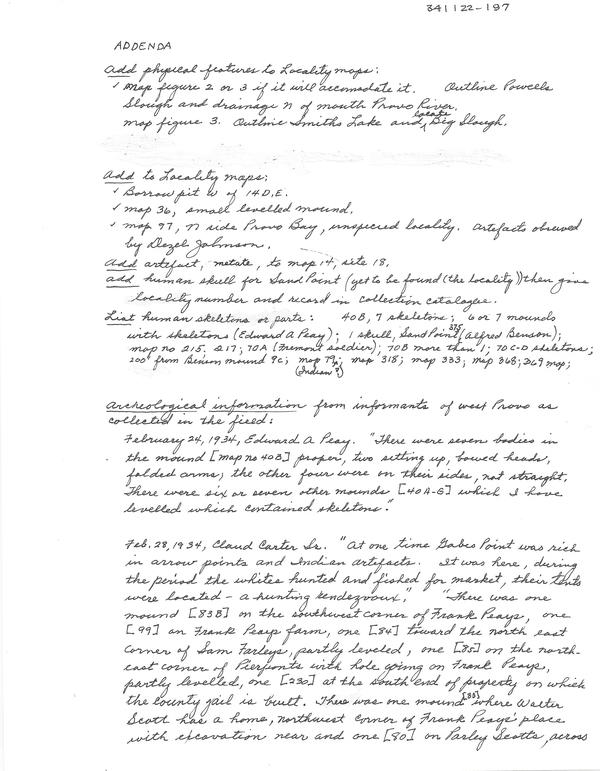 341122-197
ADDENDA
Add physical features to Locality maps:
✓ Map figure 2 or 3 if it will accomodate it. Outline Powells
Slough and drainage N of mouth Provo River.
map figure 3. Outline Smiths Lake and locate Big Slough.
Add to Locality maps:
✓ Borrow pit W of 14D,E.
✓ map 36, small levelled mound.
✓ map 97, N side Provo Bay, unspecied locality. Artefacts observed
by Dezel Johnson.
Add artefact, metate, to map 14, site 18.
add human skull for Sand Point (yet to be found (the locality)) then give
locality number and record in collection catalogue.
List human skeletons or parts: 40B, 7 skeletons; 6 or 7 mounds
with skeletons (Edward A Peay); 1 skull, Sand Point 375 (Alfred Benson);
map no 215. 217; 70A (Fremont soldier); 70B more than 1; 70C-D skeletons;
200' from Benson mound 9C; map 79A (Indian?); map 318; map 333; map 368; 269 map;
Archeological information from informants of west Provo as
collected in the field:
February 24, 1934, Edward A Peay. "There were seven bodies in
the mound [map no 40B] proper, two sitting up, bowed heads,
folded arms; the other four were on their sides, not straight.
There were six or seven other mounds [40A-G] which I have
levelled which contained skeletons".
Feb. 28, 1934, Claud Carter Sr. "At one time Gabes Point was rich
in arrow points and Indian artifacts. It was here, during
the period the whites hunted and fished for market, their tents
were located - a hunting rendezvoux". "There was one
mound [83B] on the southwest corner of Frank Peays, one
[99] on Frank Peays farm, one [84] toward the north east
corner of Sam Farleys, partly leveled, one [85] on the north-
east corner of Pierponts with hole going on Frank Peays,
partly levelled, one [230] at the south end of property on which
the county jail is built. There was one mound [88] where Walter
Scott has a home, northwest corner of Frank Peays' place
with excavation near and one [80] on Parley Scotts, across